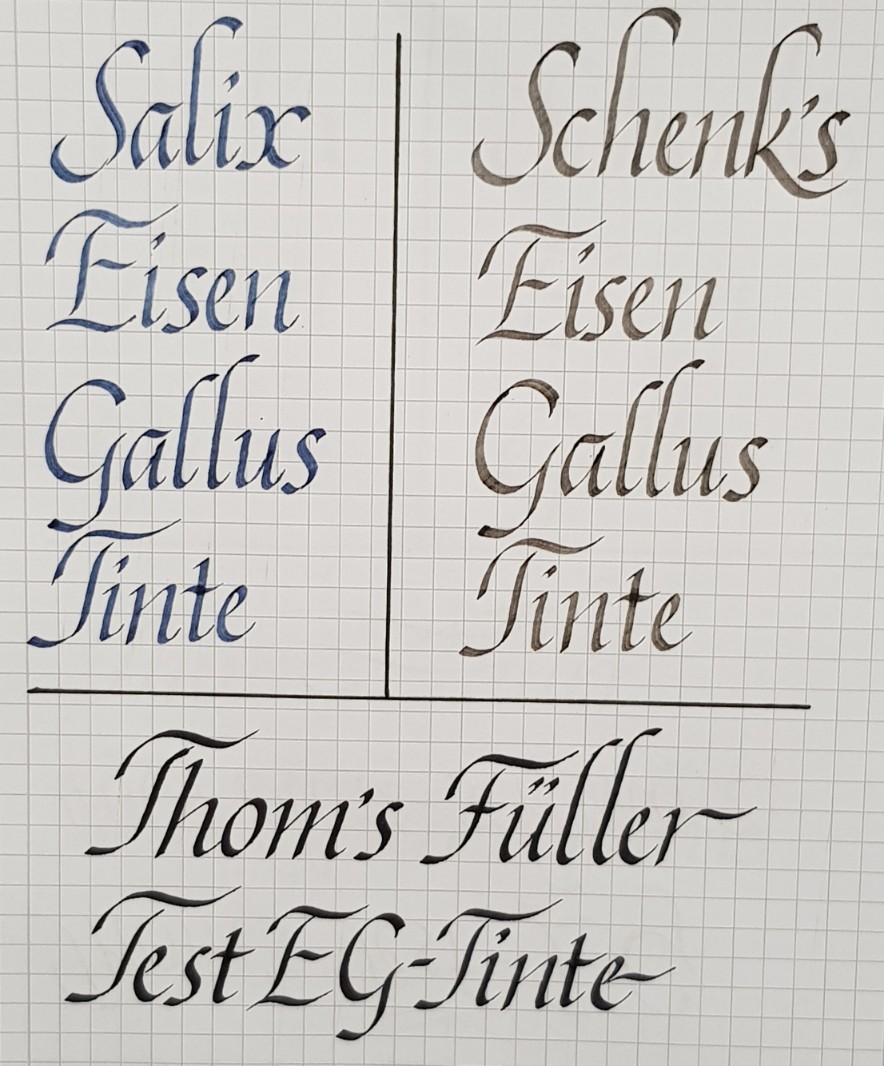 Salix
Eisen
Gallus
Tinte
Schenk's
Eisen
Gallus
Tinte
Thom's Füller
Test EG-Tinte